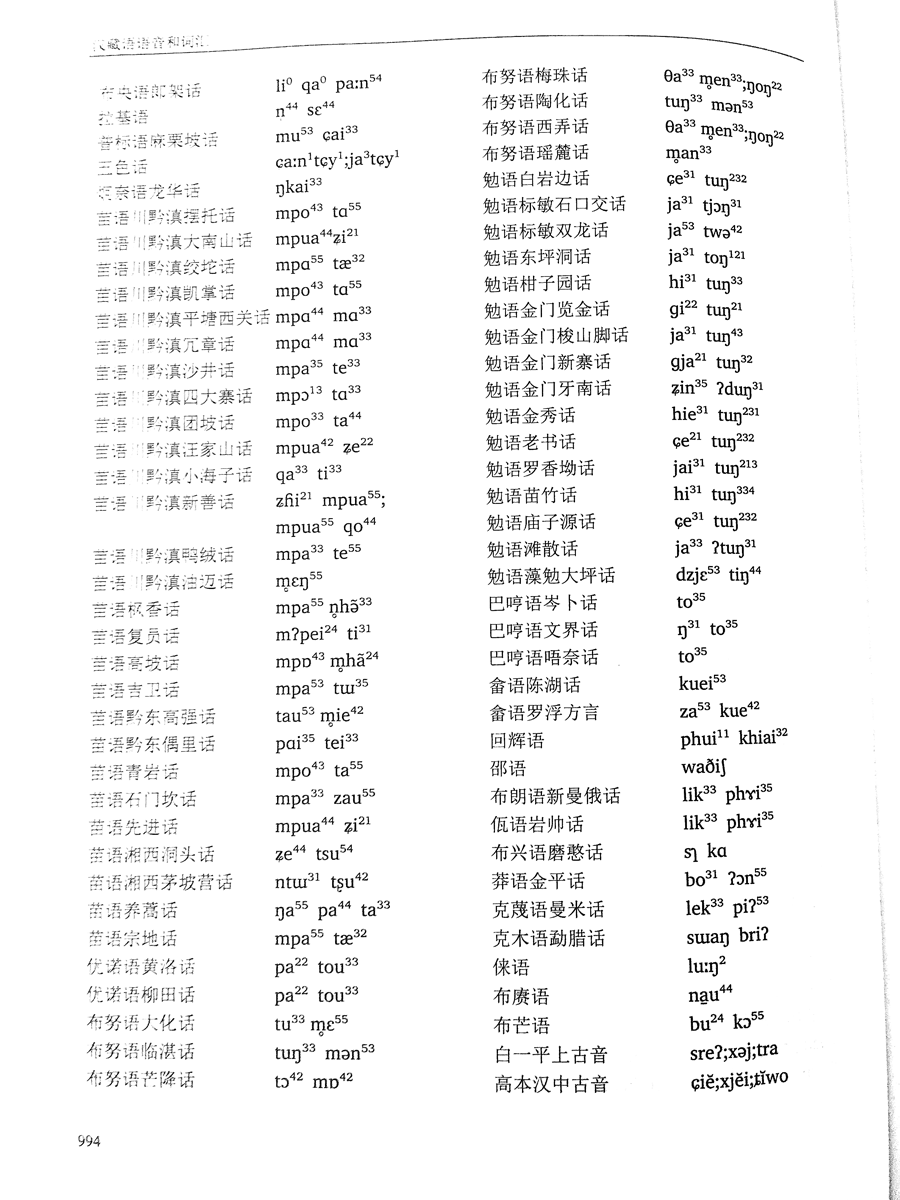 汉藏语语音和词汇
布央语郎架话 li⁰ qa⁰ pa:n⁵⁴
拉基语 n̩⁴⁴ sɛ⁴⁴
普标语麻栗坡话 mu⁵³ ɕai³³
三色话 ɕa:n¹tɕy¹;ja³tɕy¹
炯奈语龙华话 ŋkai³³
苗语川黔滇摆托话 mpo⁴³ tɑ⁵⁵
苗语川黔滇大南山话 mpua⁴⁴ʑi²¹
苗语川黔滇绞坨话 mpɑ⁵⁵ tæ³²
苗语川黔滇凯掌话 mpo⁴³ tɑ⁵⁵
苗语川黔滇平塘西关话 mpɑ⁴⁴ mɑ³³
苗语川黔滇冗章话 mpɑ⁴⁴ mɑ³³
苗语川黔滇沙井话 mpa³⁵ te³³
苗语川黔滇四大寨话 mpɔ¹³ tɑ³³
苗语川黔滇团坡话 mpo³³ ta⁴⁴
苗语川黔滇汪家山话 mpua⁴² ʑe²²
苗语川黔滇小海子话 qa³³ ti³³
苗语川黔滇新善话 zɦi²¹ mpua⁵⁵;
mpua⁵⁵ qo⁴⁴
苗语川黔滇鸭绒话 mpa³³ te⁵⁵
苗语川黔滇油迈话 m̥ɛŋ⁵⁵
苗语枫香话 mpa⁵⁵ n̥hɔ̃³³
苗语复员话 mʔpei²⁴ ti³¹
苗语高坡话 mpɒ⁴³ m̥hã²⁴
苗语吉卫话 mpa⁵³ tɯ³⁵
苗语黔东高强话 tau⁵³ m̥ie⁴²
苗语黔东偶里话 pɑi³⁵ tei³³
苗语青岩话 mpo⁴³ ta⁵⁵
苗语石门坎话 mpa³³ zau⁵⁵
苗语先进话 mpua⁴⁴ ʑi²¹
苗语湘西洞头话 ʑe⁴⁴ tsu⁵⁴
苗语湘西茅坡营话 ntɯ³¹ tʂu⁴²
苗语养蒿话 ŋa⁵⁵ pa⁴⁴ ta³³
苗语宗地话 mpa⁵⁵ tæ³²
优诺语黄洛话 pa²² tou³³
优诺语柳田话 pa²² tou³³
布努语大化话 tu³³ m̥ɛ⁵⁵
布努语临湛话 tuŋ³³ mən⁵³
布努语芒降话 tɔ⁴² mɒ⁴²
布努语梅珠话 θa³³ m̥en³³;ŋoŋ²²
布努语陶化话 tuŋ³³ mən⁵³
布努语西弄话 θa³³ m̥en³³;ŋoŋ²²
布努语瑶麓话 m̥an³³
勉语白岩边话 ɕe³¹ tuŋ²³²
勉语标敏石口交话 ja³¹ tjɔŋ³¹
勉语标敏双龙话 ja⁵³ twə⁴²
勉语东坪洞话 ja³¹ toŋ¹²¹
勉语柑子园话 hi³¹ tuŋ³³
勉语金门览金话 ɡi²² tuŋ²¹
勉语金门梭山脚话 ja³¹ tuŋ⁴³
勉语金门新寨话 ɡja²¹ tuŋ³²
勉语金门牙南话 ʑin³⁵ ʔduŋ³¹
勉语金秀话 hie³¹ tuŋ²³¹
勉语老书话 ɕe²¹ tuŋ²³²
勉语罗香坳话 jai³¹ tuŋ²¹³
勉语苗竹话 hi³¹ tuŋ³³⁴
勉语庙子源话 ɕe³¹ tuŋ²³²
勉语滩散话 ja³³ ʔtuŋ³¹
勉语藻勉大坪话 dzjɛ⁵³ tiŋ⁴⁴
巴哼语岑卜话 to³⁵
巴哼语文界话 ŋ³¹ to³⁵
巴哼语唔奈话 to³⁵
畲语陈湖话 kuei⁵³
畲语罗浮方言 za⁵³ kue⁴²
回辉语 phui¹¹ khiai³²
邵语 waðiʃ
布朗语新曼俄话 lik³³ phɤi³⁵
佤语岩帅话 lik³³ phɤi³⁵
布兴语磨憨话 sɿ kɑ
莽语金平话 bo³¹ ʔɔn⁵⁵
克蔑语曼米话 lek³³ piʔ⁵³
克木语勐腊话 sɯaŋ briʔ
俫语 lu:ŋ²
布赓语 na̱u⁴⁴
布芒语 bu²⁴ kɔ⁵⁵
白一平上古音 sreʔ;xəj;tra
高本汉中古音 ɕiě;xjěi;ȶǐwo
994